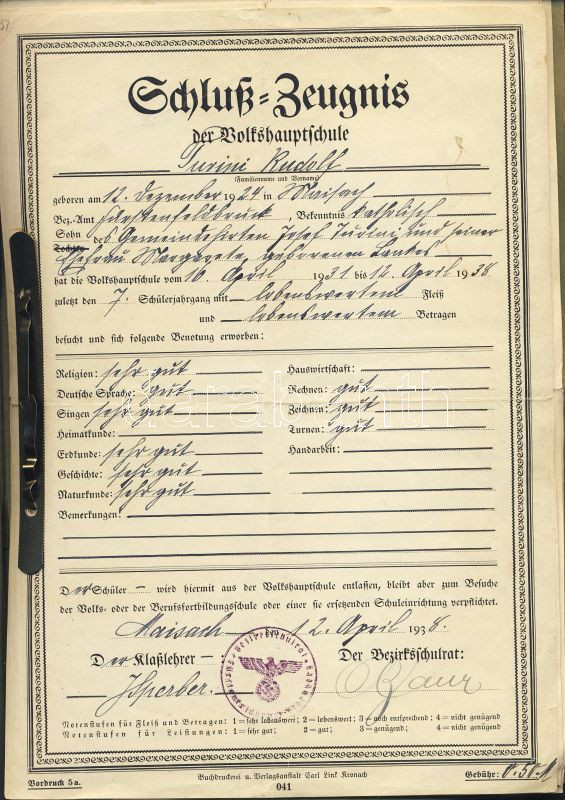 Schluß-Zeugnis
der Volkshauptschule
Turini Rudolf
(Familienname und Vorname)
geboren am 12. Dezember 1924 in Maisach
Bez.-Amt Fürstenfeldbruck, Bekenntnis katholisch
Sohn des Gemeindehirten Josef Turini und seiner
Tochter
Ehefrau Margarete, geborenen Landes
hat die Volkshauptschule vom 16. April 1931 bis 12. April 1938
zuletzt den 7. Schülerjahrgang mit lobenswertem Fleiß
und lobenswertem Betragen
besucht und sich folgende Benotung erworben:
Religion: sehr gut
Deutsche Sprache: gut
Singen sehr gut
Heimatkunde:
Erdkunde: sehr gut
Geschichte: sehr gut
Naturkunde: sehr gut
Bemerkungen:
Hauswirtschaft:
Rechnen: gut
Zeichnen: gut
Turnen: gut
Handarbeit:
Der Schüler – wird hiermit aus der Volkshauptschule entlassen, bleibt aber zum Besuche
der Volks- oder der Berufsfortbildungsschule oder einer sie ersetzenden Schuleinrichtung verpflichtet.
Maisach den 12. April 1938.
Der Klaßlehrer –:
Der Bezirksschulrat:
Notenstufen für Fleiß und Betragen: 1 = sehr lobenswert; 2 = lobenswert; 3 = noch entsprechend; 4 = nicht genügend
Notenstufen für Leistungen: 1 = sehr gut; 2 = gut; 3 = genügend; 4 = nicht genügend
Vordruck 5a.
Buchdruckerei u. Verlagsanstalt Carl Link Kronach
Gebühr: 0.50 M
041